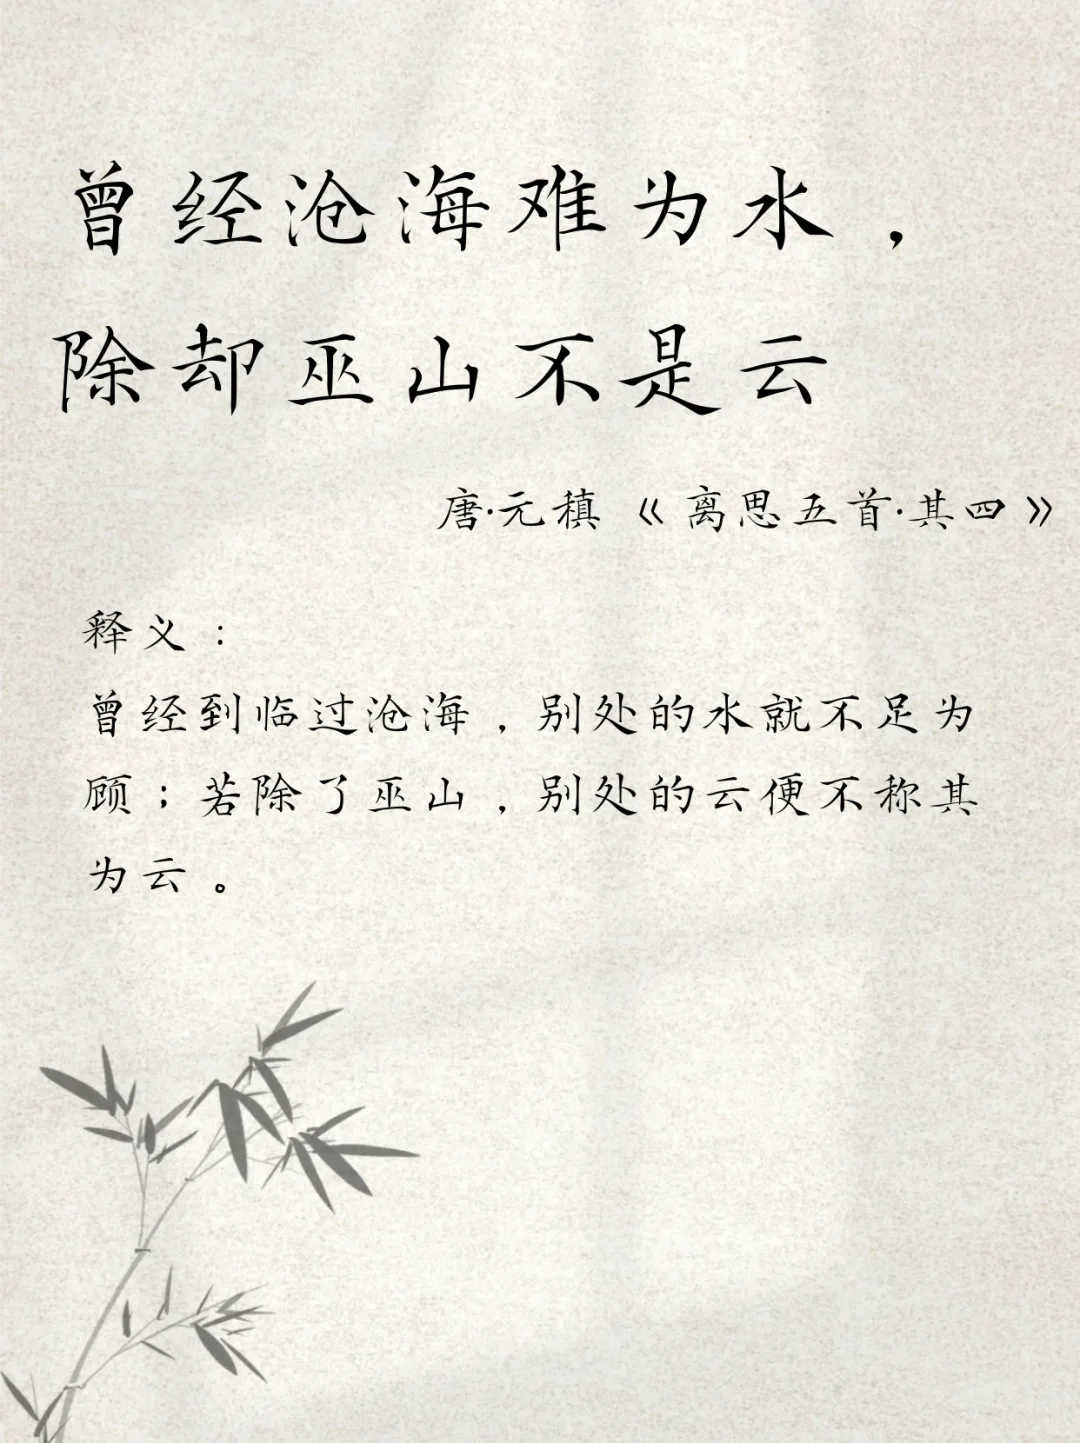 曾经沧海难为水，
除却巫山不是云
唐·元稹《离思五首·其四》
释义：
曾经到临过沧海，别处的水就不足为
顾；若除了巫山，别处的云便不称其
为云。